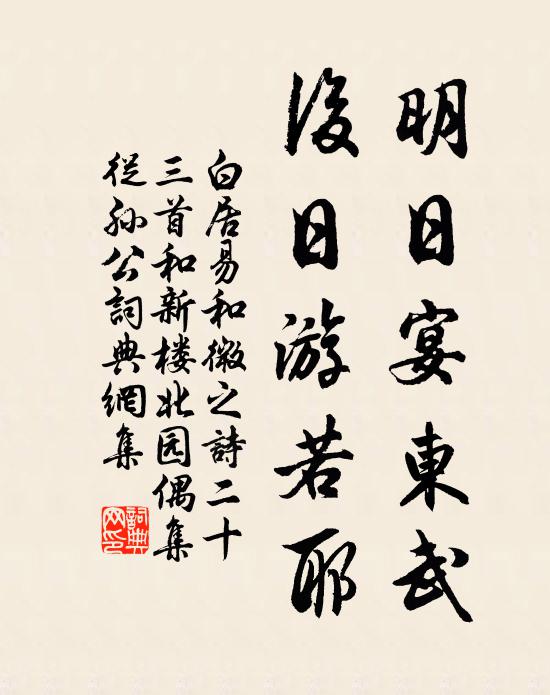 明日宴東武
後日游若耶
白居易和微之詩二十
三首和新楼北园偶集
從孙公詞典網集
詞典
网印